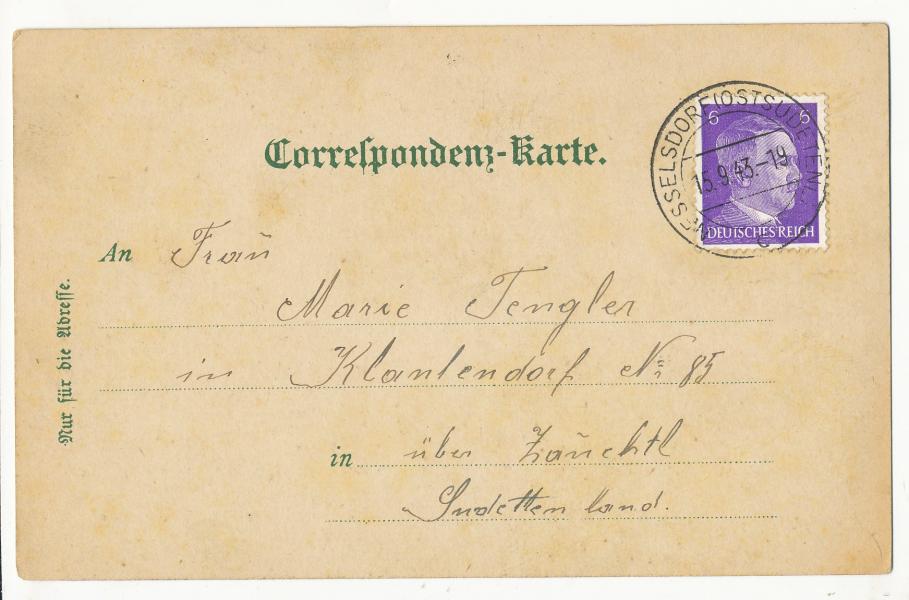 Correſpondenz-Karte.
NESSELSDORF (OSTSUDETENL.)
15.9.43.-19
6 6
DEUTSCHES REICH
An Frau
Marie Tengler
in Klantendorf No 85
in über Zauchtl
Sudettenland.
Nur für die Adreſſe.